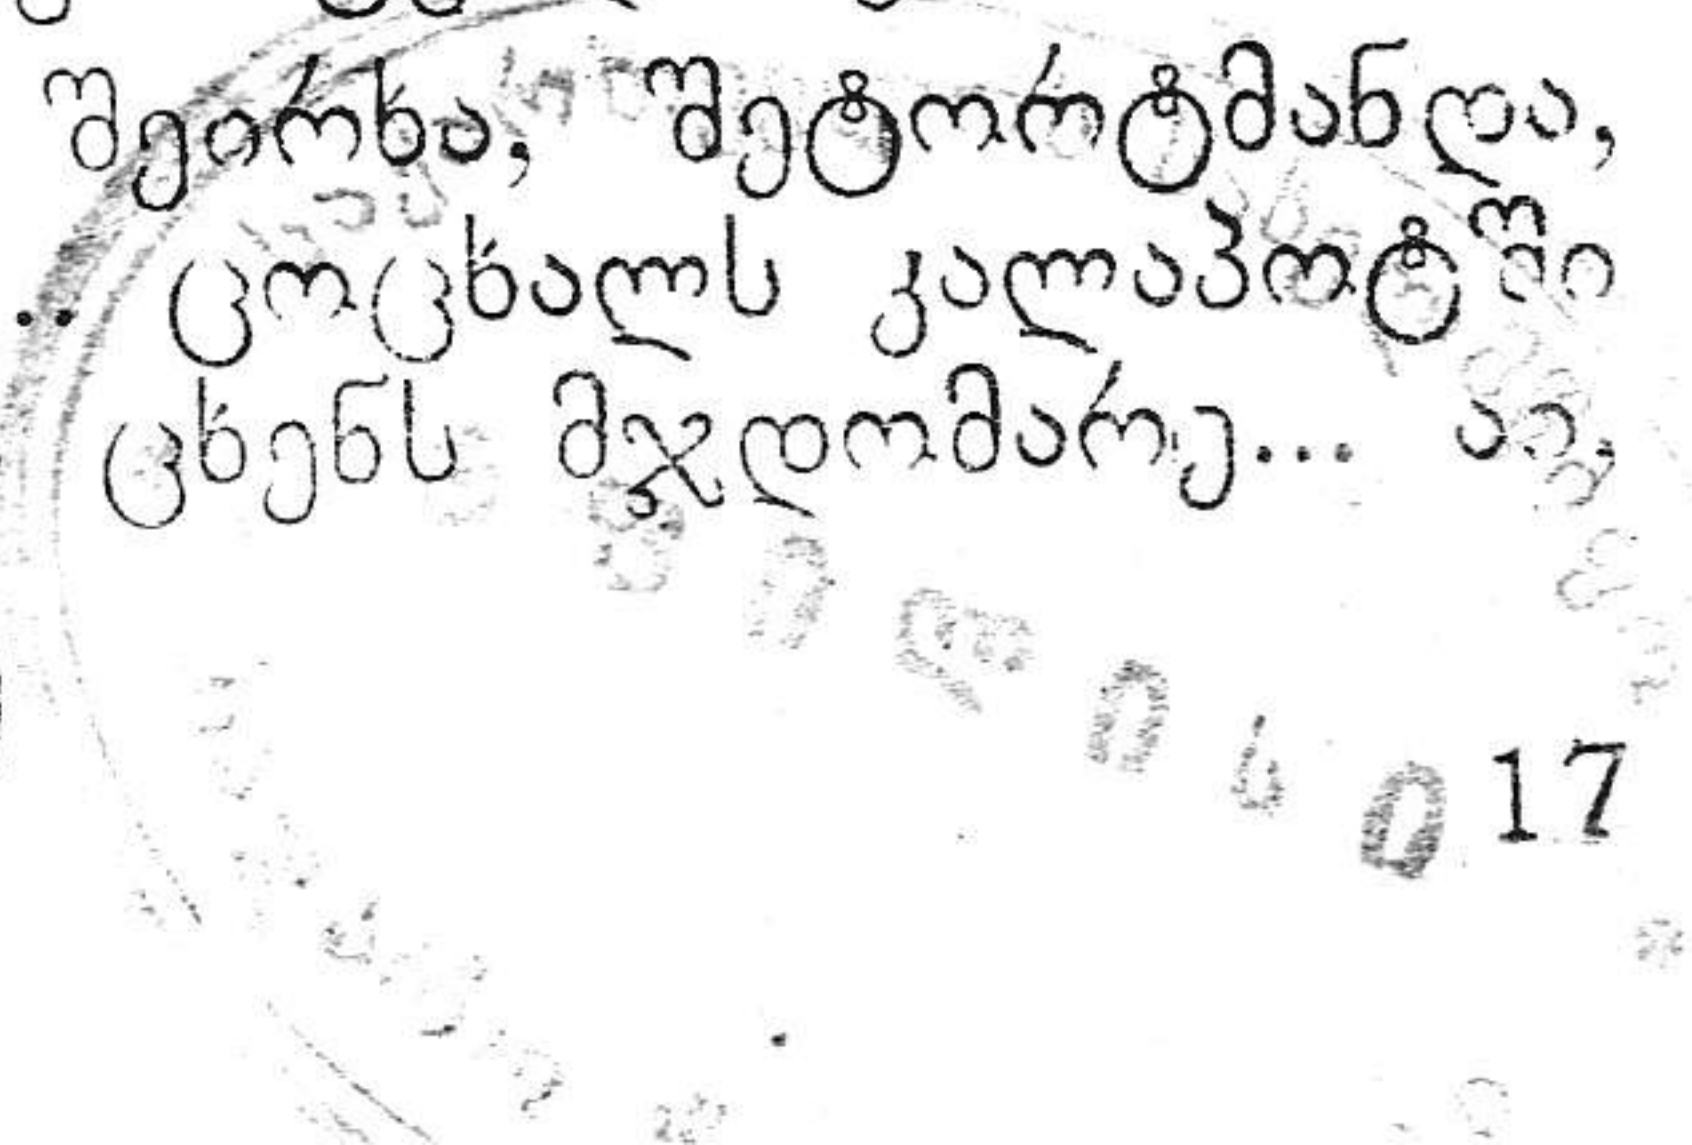 შეირხა, შეტორტმანდა,
.. ცოცხალს კალაპოტში
ცხენს მჯდომარე... აი,
17